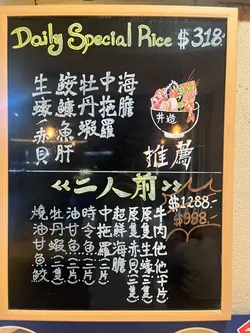 Daily Special Rice $318.-
海膽
中拖羅
牡丹蝦
鮟鱇魚肝
生蠔赤貝
推薦
<<二人前>>
$1288.-
$988.-
牛肉他他(十片)
原隻生蠔(二隻)
原隻赤貝(二隻)
超鮮海膽
中拖羅(二片)
時令魚(二片)
油甘魚(二片)
牡丹蝦(二隻)
燒油甘魚鮫